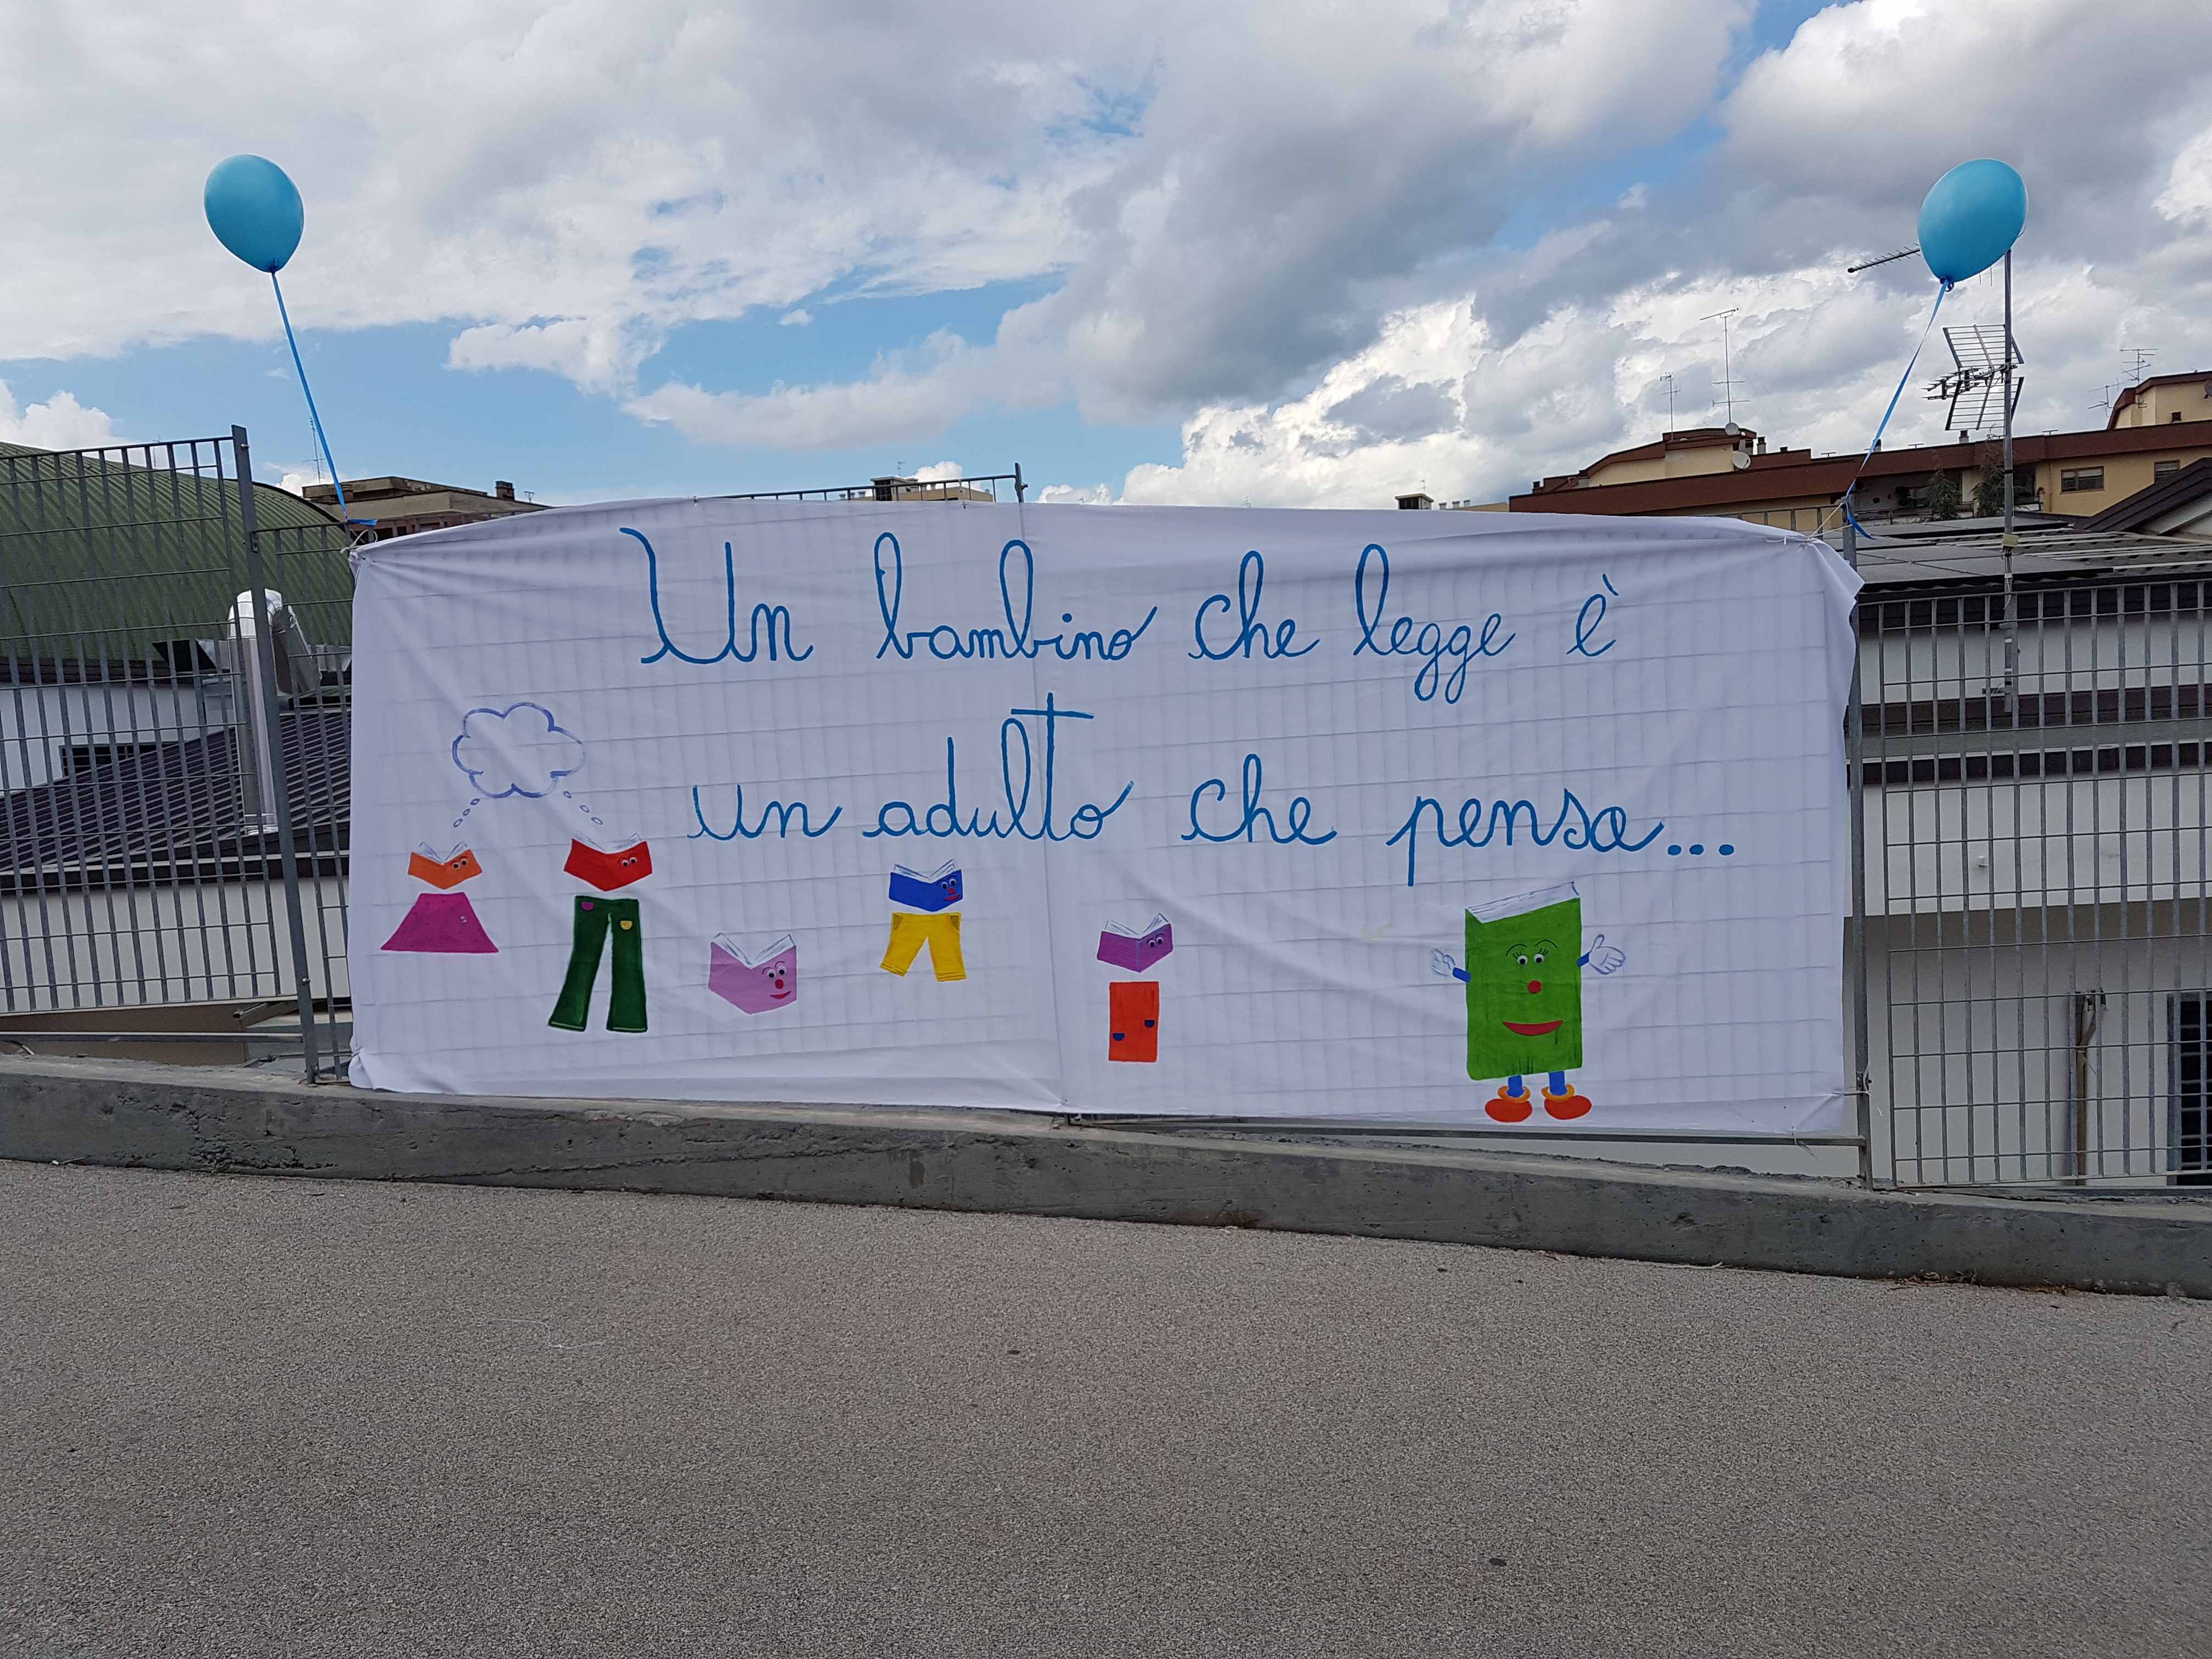 Un bambino che legge è
un adulto che pensa...